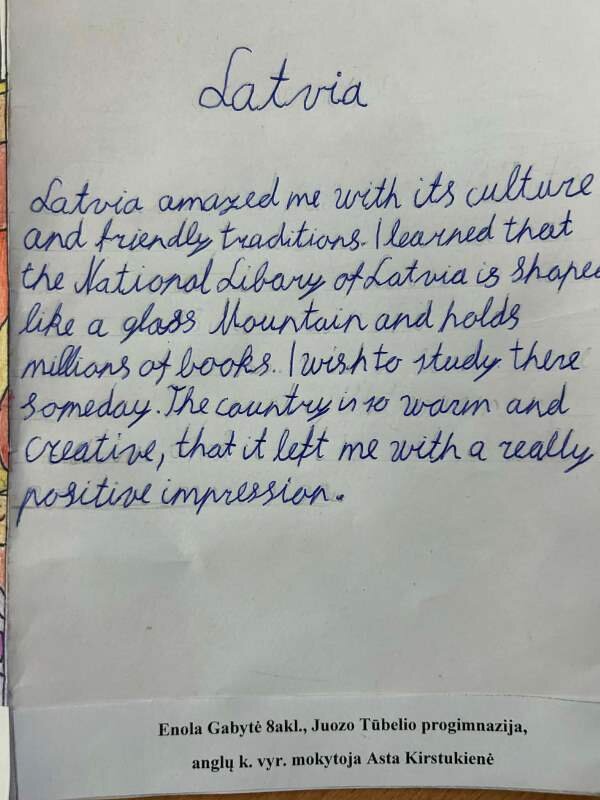 Latvia
Latvia amazed me with its culture
and friendly traditions. I learned that
the National Libary of Latvia is shaped
like a glass Mountain and holds
millions of books. I wish to study there
someday. The country is so warm and
creative, that it left me with a really
positive impression.
Enola Gabytė 8akl., Juozo Tūbelio progimnazija,
anglų k. vyr. mokytoja Asta Kirstukienė